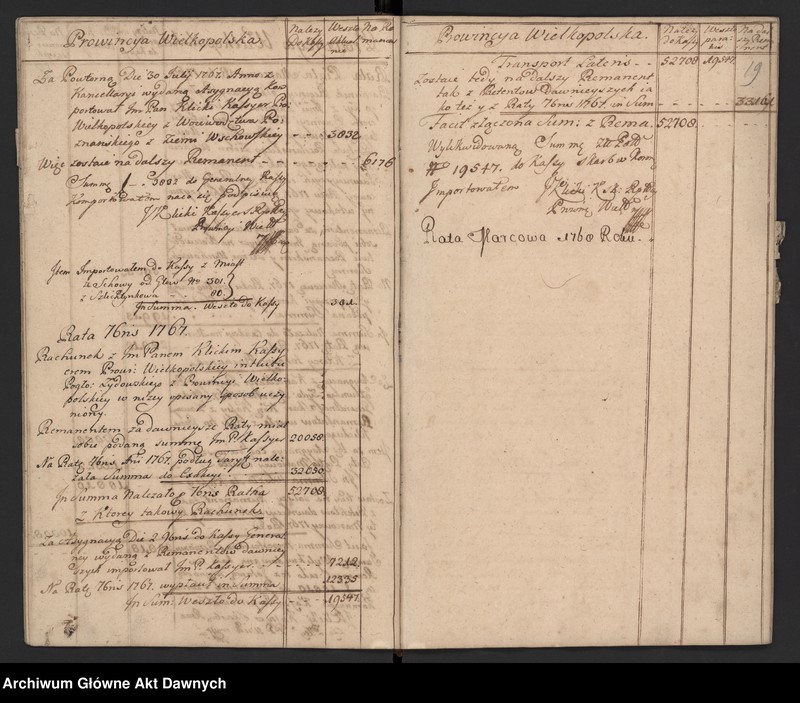 Prowincya Wielkopolska.
Należy do Kassy
Weszło
Na Re manens
Za Powtorną Die 30 Julij 1767. Anno z
Kancellaryi wydaną Assygnacyą
portował Jm Pan Klicki Kassyer Pro:
Wielkopolskiey z Woiewodztwa Po:
znanskiego z Ziemi Wschowskiey - - - 3832
Więc zostaie na dalszy Remanent - - - 6176
Summę - . 3832 do Generalney Kassy
Jmportowałem na co się podpisuię
J Klicki Kassyer
Prowincyi Wielk
Jtem Jmportowałem do Kassy z Miast
z Schowy od Głów No 301.
z Szlichtynkowa - - 80.
Jn Summa. Weszło do Kassy 381
Rata 7bris 1767.
Rachunek z Jm Panem Klickim Kassy
erem Prow: Wielkopolskiey
Pogło: Żydowskiego z Prowincyi Wielko:
polskiey w niżey opisany sposób uczy
niony.
Remanentem za dawnieysze Raty miał
sobie podaną summę Jm P. Kassyer 20058
Na Ratę 7bris Anni 1767. podług Taryff nale:
żała Summa do Exakcyi. 32650
Jn Summa Należało z 7bris Ratką 52708.
z Ktorey takowy Rachunek.
Za Assygnacyą Die 2 9bris do Kassy General
ney wydaną z Remanentow dawniey
szych importował Jm P. Kassyer - - - 7212
Na Ratę 7bris 1767. wypłacił in Summa 12335
Jn Sum: Weszło do Kassy - - - 19547
Prowincya Wielkopolska.
Należy do kassy
Weszło
Na dal szy Rema nens
19
Transport Latens - - 52708 19547.
Zostaie tedy na dalszy Remanent
tak z Retentow Dawnieyszych ia
ko też y z Raty 7bris 1767. in Sum - - - - 33161
Facit złączona Sum: z Rema. 52708.
Wylikwidowaną Summę
# 19547. do kassy skarbu Koron
Jmportowałem J Klicki K:
Prowin Wielk
Rata Marcowa 1768 Roku.
Archiwum Główne Akt Dawnych